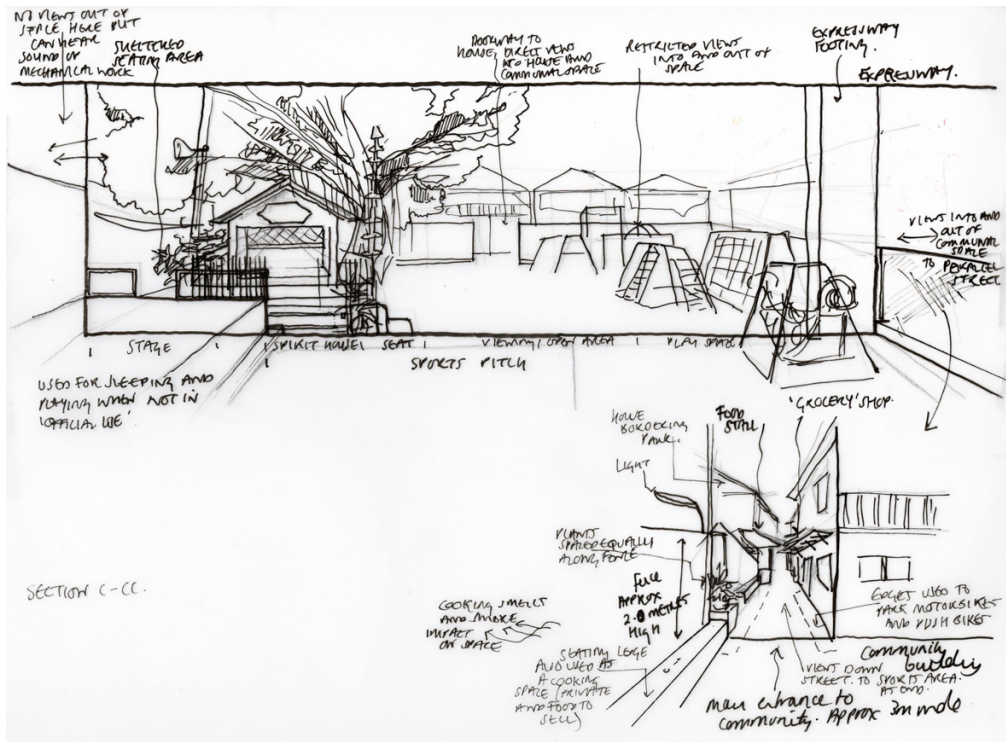 NO VIEWS OUT OF
SPACE HERE BUT
CAN HEAR
SOUND OF
MECHANICAL WORK
SHELTERED
SEATING AREA
DOORWAY TO
HOUSE, DIRECT VIEWS
INTO HOUSE AND
COMMUNAL SPACE
RESTRICTED VIEWS
INTO AND OUT OF
SPACE
EXPRESSWAY
FOOTING.
EXPRESSWAY.
VIEWS INTO AND
OUT OF
COMMUNAL
SPACE
TO PARALLEL
STREET.
STAGE
SPIRIT HOUSE
SEAT
VIEWING/OPEN AREA
PLAY SPACE
SPORTS PITCH
USED FOR SLEEPING AND
PLAYING WHEN NOT IN
'OFFICIAL USE'
'GROCERY' SHOP.
FOOD
STALL
HOUSE
BORDERING
LIGHT
PLANTS
SPACED EQUALLY
ALONG FENCE
APPROX
2.0 METRES
HIGH
SECTION C-CC.
COOKING SMELLS
AND SMOKE
IMPACT
ON SPACE
SEATING LEDGE
ALSO USED AS
A COOKING
SPACE (PRIVATE
AND FOOD TO
SELL)
EDGES USED TO
PARK MOTORBIKES
AND PUSH BIKES
Community
building
VIEW DOWN
STREET TO SPORTS AREA
AT END.
main entrance to
community. Approx 3m wide